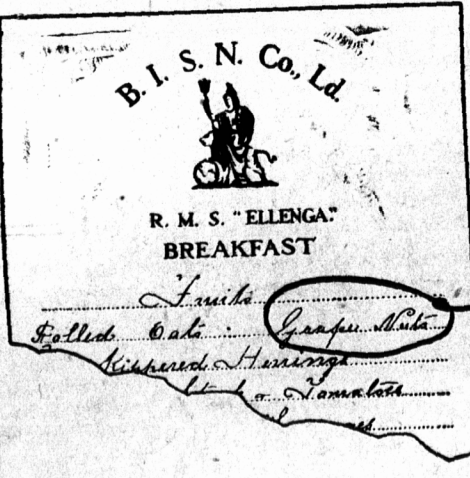 B. I. S. N. Co., Ld.
R. M. S. "ELLENGA."
BREAKFAST
Fruits
Rolled Oats . Grape Nuts
Kippered Herrings
Tomatoes